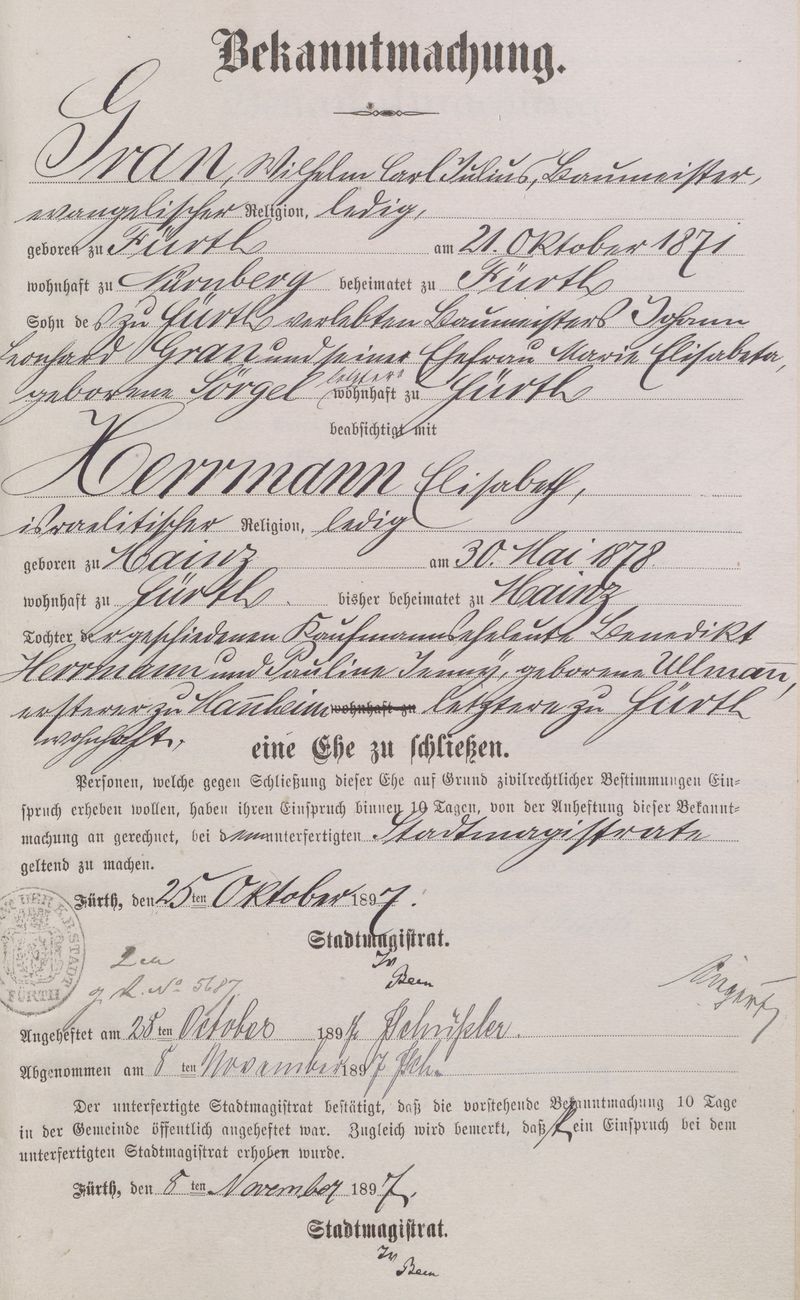 Bekanntmachung.
Gran, Wilhelm Carl Julius, Baumeister,
evangelischer Religion, ledig,
geboren zu Fürth am 21. Oktober 1871
wohnhaft zu Nürnberg beheimatet zu Fürth
Sohn des zu Fürth verlebten Baumeisters Johann
Leonhard Gran und seiner Ehefrau Marie Elisabeta,
letztere
geborene Sörgel wohnhaft zu Fürth
beabsichtigt mit
Herrmann Elisabeth,
israelitischer Religion, ledig
geboren zu Mainz am 30. Mai 1878
wohnhaft zu Fürth. bisher beheimatet zu Mainz
Tochter der geschiedenen Kaufmannseheleute Benedikt
Herrmann und Pauline Jenny, geborene Ullmann,
ersterer zu wohnhaft zu letztere zu Fürth
wohnhaft.
eine Ehe zu schließen.
Personen, welche gegen Schließung dieser Ehe auf Grund zivilrechtlicher Bestimmungen Ein-
spruch erheben wollen, haben ihren Einspruch binnen 10 Tagen, von der Anheftung dieser Bekannt-
machung an gerechnet, bei dem unterfertigten Stadtmagistrate
geltend zu machen.
Fürth, den 25ten Oktober 1897.
Stadtmagistrat.
No 5687
FÜRTH
Angeheftet am 28ten October 1897 Schüßler.
Abgenommen am 8ten November 1897 Sch.
Der unterfertigte Stadtmagistrat bestätigt, daß die vorstehende Bekanntmachung 10 Tage
in der Gemeinde öffentlich angeheftet war. Zugleich wird bemerkt, daß kein Einspruch bei dem
unterfertigten Stadtmagistrat erhoben wurde.
Fürth, den 8ten November 1897.
Stadtmagistrat.